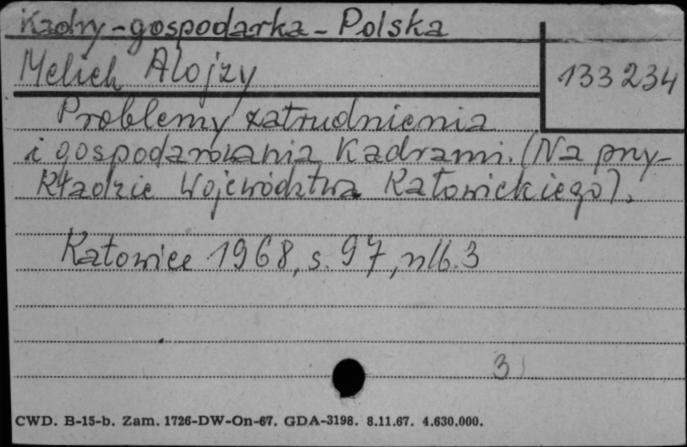 Kadry-gospodarka-Polska
Melich Alojzy
133 234
Problemy zatrudnienia
i gospodarowania Kadrami. (Na przy-
kładzie Województwa Katowickiego).
Katowice 1968, s. 97, nlb. 3
3)
CWD. B-15-b. Zam. 1726-DW-On-67. GDA-3198. 8.11.67. 4.630.000.